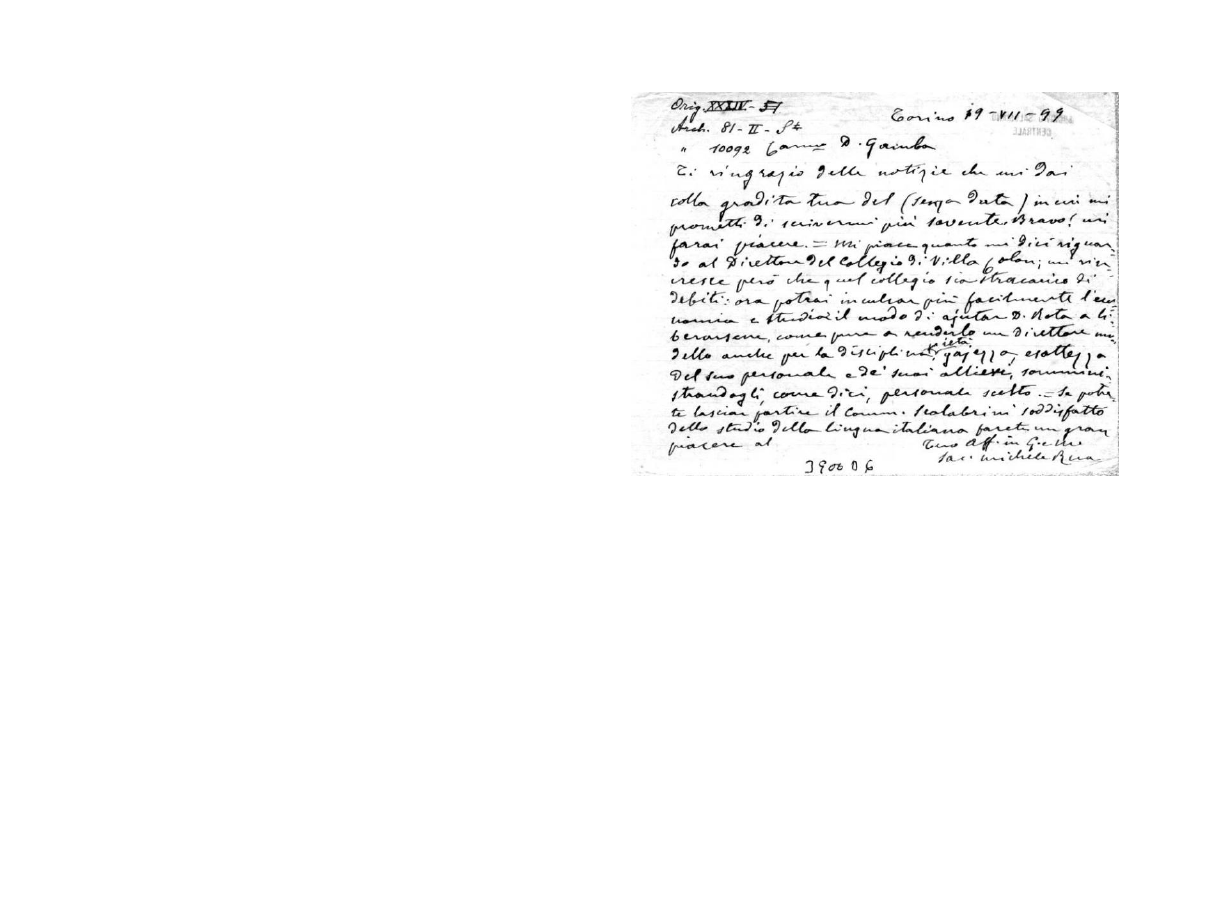 Orig. XXXIV. - 51
Torino 19 - VII - 99
Arch. 81 - II - S.ta
CENTRALE
" 10092 Carmo D. Gamba
Ti ringrazio delle notizie che mi dai
colla gradita tua del (senza data) in cui mi
prometti di scrivermi più sovente. Bravo! mi
farai piacere. = Mi piace quanto mi dici riguar-
do al Direttore del Collegio di Villa Colon; mi rin-
cresce però che quel collegio sia stracarico di
debiti: ora potrai inculcar più facilmente l'eco-
nomia e studiar il modo di ajutar D. Rota a li-
berarsene, come pure a renderlo un direttore mo-
dello anche per la disciplina, pietà, esattezza
del suo personale e de' suoi allievi, sommini-
strandogli, come dici, personale scelto. = Se potre-
te lasciar partire il Comm. Scalabrini soddisfatto
dello studio della lingua italiana farete un gran
piacere al
Tuo Aff. in G. e M.
Sac. Michele Rua
390006